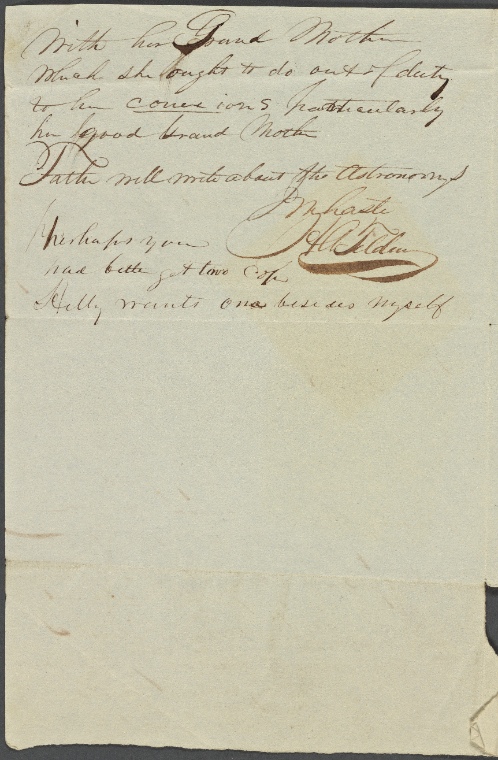 With her Grand Mother
which she ought to do out of duty
to her conexions particularly
her good Grand Mother
Father will write about the Astronomys
In haste
Perhaps you
H A Tilden
had better get two cop
wants one besides myself